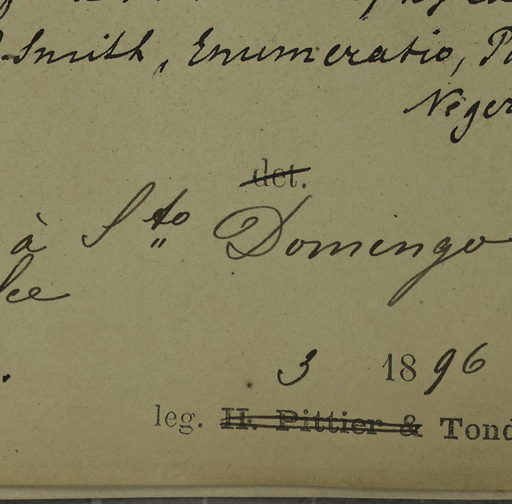 Smith, Enumeratio, P
Niger
det.
à Sto Domingo
3 1896
leg. H. Pittier & Tond